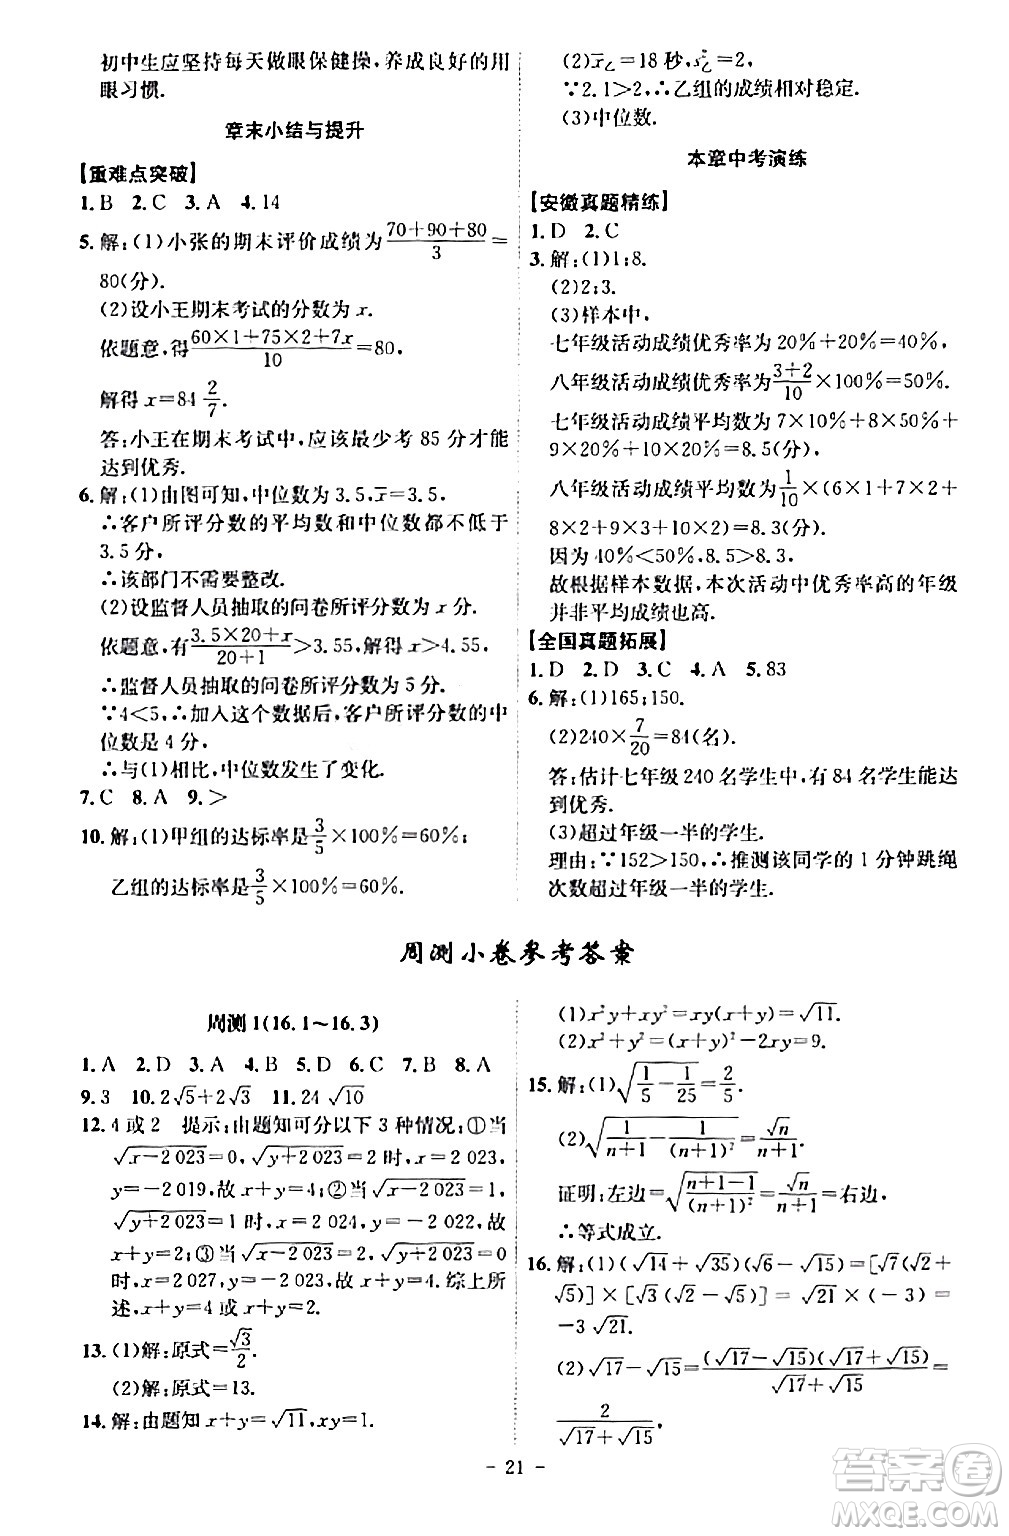 初中生应坚持每天做眼保健操,养成良好的用
眼习惯.
章末小结与提升
【重难点突破】
1. B 2. C 3. A 4. 14
5. 解:(1)小张的期末评价成绩为(70+90+80)/3=
80(分).
(2)设小王期末考试的分数为 x.
依题意,得(60×1+75×2+7x)/10=80,
解得 x=84 2/7.
答:小王在期末考试中,应该最少考 85 分才能
达到优秀.
6. 解:(1)由图可知,中位数为 3.5,x̄=3.5,
∴客户所评分数的平均数和中位数都不低于
3.5 分,
∴该部门不需要整改.
(2)设监督人员抽取的问卷所评分数为 x 分.
依题意,有(3.5×20+x)/(20+1)>3.55,解得 x>4.55,
∴监督人员抽取的问卷所评分数为 5 分.
∵4<5,∴加入这个数据后,客户所评分数的中
位数是 4 分,
∴与(1)相比,中位数发生了变化.
7. C 8. A 9. >
10. 解:(1)甲组的达标率是3/5×100%=60%;
乙组的达标率是3/5×100%=60%.
(2)x̄乙=18 秒,s²乙=2,
∵2.1>2,∴乙组的成绩相对稳定.
(3)中位数.
本章中考演练
【安徽真题精练】
1. D 2. C
3. 解:(1)1;8.
(2)2;3.
(3)样本中,
七年级活动成绩优秀率为 20%+20%=40%,
八年级活动成绩优秀率为(3+2)/10×100%=50%.
七年级活动成绩平均数为 7×10%+8×50%+
9×20%+10×20%=8.5(分),
八年级活动成绩平均数为1/10×(6×1+7×2+
8×2+9×3+10×2)=8.3(分).
因为 40%<50%,8.5>8.3,
故根据样本数据,本次活动中优秀率高的年级
并非平均成绩也高.
【全国真题拓展】
1. D 2. D 3. C 4. A 5. 83
6. 解:(1)165;150.
(2)240×7/20=84(名).
答:估计七年级 240 名学生中,有 84 名学生能达
到优秀.
(3)超过年级一半的学生.
理由:∵152>150,∴推测该同学的 1 分钟跳绳
次数超过年级一半的学生.
周测小卷参考答案
周测 1(16.1~16.3)
1. A 2. D 3. A 4. B 5. D 6. C 7. D 8. A
9. 3 10. 2√5+2√3 11. 24√10
12. 4 或 2 提示:由题知可分以下 3 种情况:①当
√(x−2 023)=0,√(y+2 023)=1 时,x=2 023,
y=−2 019,故 x+y=4;②当√(x−2 023)=1,
√(y+2 023)=1 时,x=2 024,y=−2 022,故
x+y=2;③当√(x−2 023)=2,√(y+2 023)=0
时,x=2 027,y=−2 023,故 x+y=4.综上所
述,x+y=4 或 x+y=2.
13. (1)解:原式=√3/2.
(2)解:原式=13.
14. 解:由题知 x+y=√11,xy=1.
(1)x²y+xy²=xy(x+y)=√11.
(2)x²+y²=(x+y)²−2xy=9.
15. 解:(1)√(1/5−1/25)=2/5.
(2)√(1/(n+1)−1/(n+1)²)=√n/(n+1).
证明:左边=√((n+1−1)/(n+1)²)=√n/(n+1)=右边,
∴等式成立.
16. 解:(1)(√14+√35)(√6−√15)=[√7(√2+
√5)]×[√3(√2−√5)]=√21×(−3)=
−3√21.
(2)√17−√15=(√17−√15)(√17+√15)/(√17+√15)=
2/(√17+√15).
- 21 -
答案圈
MXQE.COM